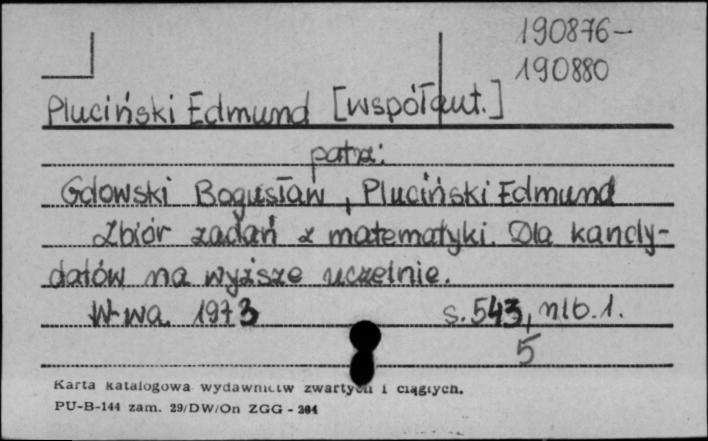 190876-
190880
Pluciński Edmund [współaut.]
patrz:
Gdowski Bogusław, Pluciński Edmund
Zbiór zadań z matematyki. Dla kandy-
datów na wyższe uczelnie.
W-wa 1973 s. 543, nlb. 1.
5
Karta katalogowa wydawnictw zwartych i ciągłych.
PU-B-144 zam. 29/DW/On ZGG - 204